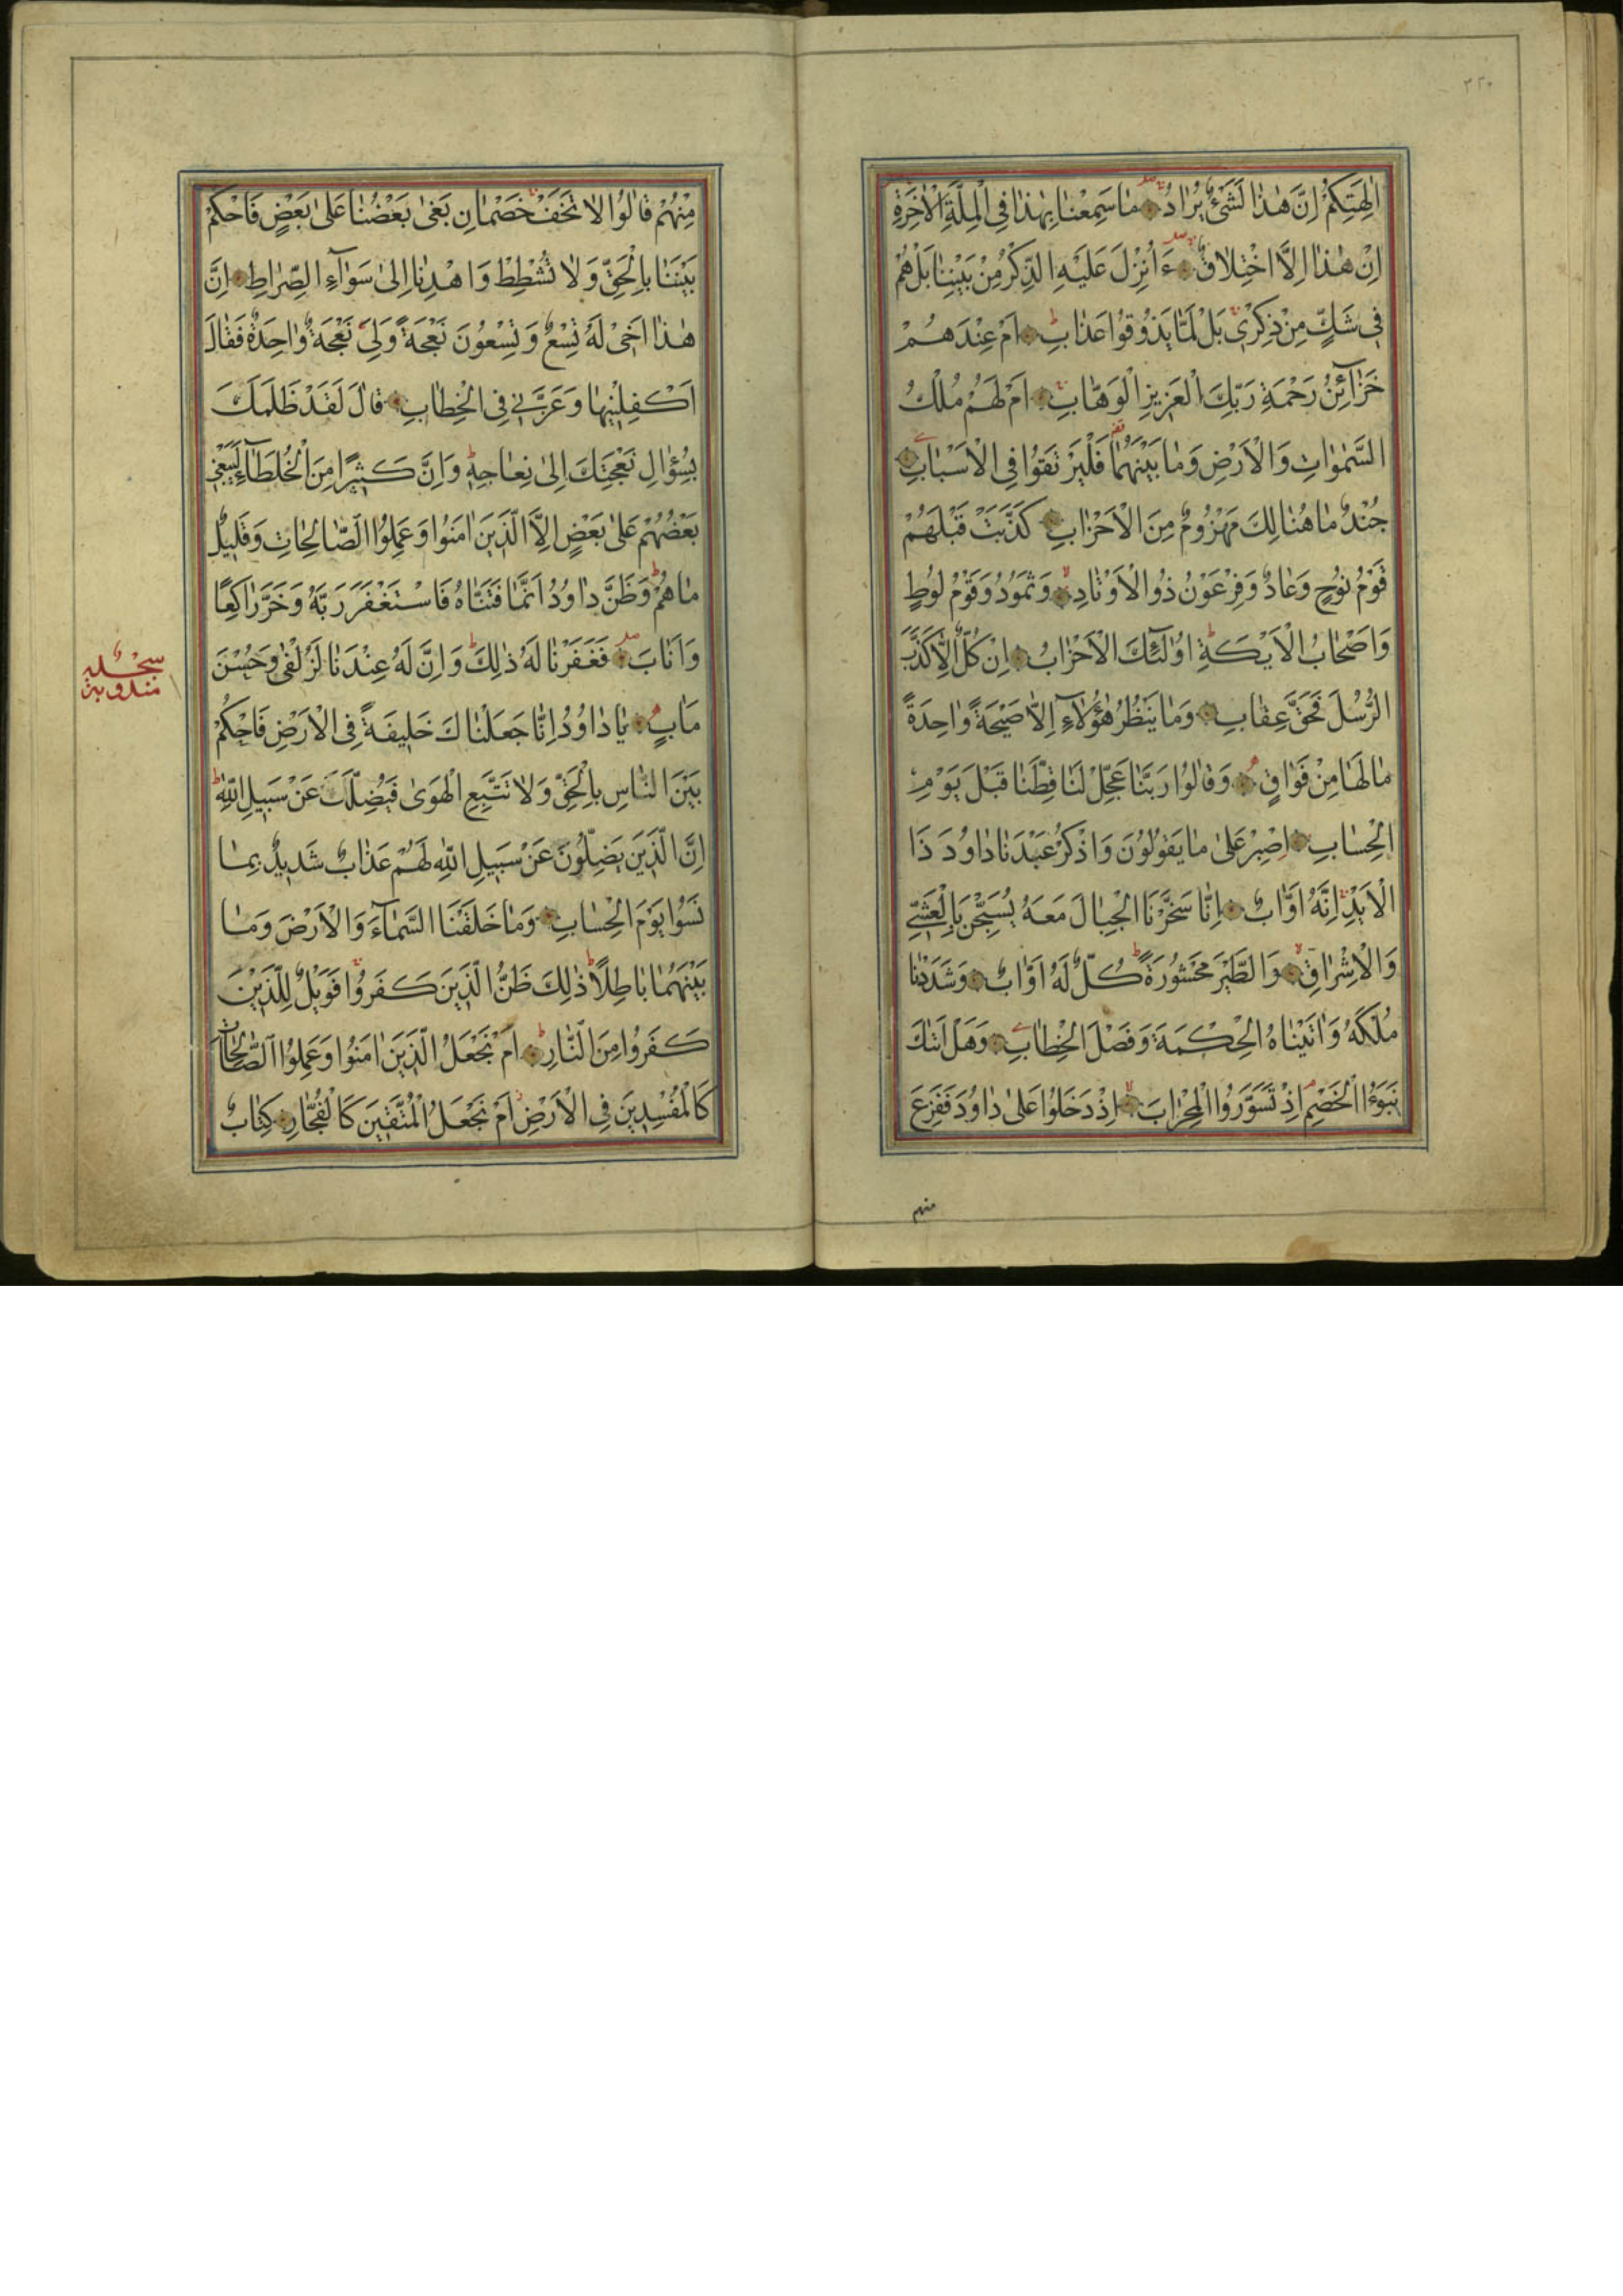 ٣٢٠
اٰلِهَتِكُمْ اِنَّ هٰذَا لَشَيْءٌ يُرَادُ مَا سَمِعْنَا بِهٰذَا فِي الْمِلَّةِ الْاٰخِرَةِ
اِنْ هٰذَا اِلَّا اخْتِلَاقٌ ءَاُنْزِلَ عَلَيْهِ الذِّكْرُ مِنْ بَيْنِنَا بَلْ هُمْ
فِي شَكٍّ مِنْ ذِكْرِي بَلْ لَمَّا يَذُوقُوا عَذَابِ اَمْ عِنْدَهُمْ
خَزَآئِنُ رَحْمَةِ رَبِّكَ الْعَزِيزِ الْوَهَّابِ اَمْ لَهُمْ مُلْكُ
السَّمٰوَاتِ وَالْاَرْضِ وَمَا بَيْنَهُمَا فَلْيَرْتَقُوا فِي الْاَسْبَابِ
جُنْدٌ مَا هُنَالِكَ مَهْزُومٌ مِنَ الْاَحْزَابِ كَذَّبَتْ قَبْلَهُمْ
قَوْمُ نُوحٍ وَعَادٌ وَفِرْعَوْنُ ذُو الْاَوْتَادِ وَثَمُودُ وَقَوْمُ لُوطٍ
وَاَصْحَابُ الْاَيْكَةِ اُولٰٓئِكَ الْاَحْزَابُ اِنْ كُلٌّ اِلَّا كَذَّبَ
الرُّسُلَ فَحَقَّ عِقَابِ وَمَا يَنْظُرُ هٰٓؤُلَآءِ اِلَّا صَيْحَةً وَاحِدَةً
مَا لَهَا مِنْ فَوَاقٍ وَقَالُوا رَبَّنَا عَجِّلْ لَنَا قِطَّنَا قَبْلَ يَوْمِ
الْحِسَابِ اِصْبِرْ عَلٰى مَا يَقُولُونَ وَاذْكُرْ عَبْدَنَا دَاوُدَ ذَا
الْاَيْدِ اِنَّهُ اَوَّابٌ اِنَّا سَخَّرْنَا الْجِبَالَ مَعَهُ يُسَبِّحْنَ بِالْعَشِيِّ
وَالْاِشْرَاقِ وَالطَّيْرَ مَحْشُورَةً كُلٌّ لَهُ اَوَّابٌ وَشَدَدْنَا
مُلْكَهُ وَاٰتَيْنَاهُ الْحِكْمَةَ وَفَصْلَ الْخِطَابِ وَهَلْ اَتٰكَ
نَبَؤُا الْخَصْمِ اِذْ تَسَوَّرُوا الْمِحْرَابَ اِذْ دَخَلُوا عَلٰى دَاوُدَ فَفَزِعَ
منهم
مِنْهُمْ قَالُوا لَا تَخَفْ خَصْمَانِ بَغٰى بَعْضُنَا عَلٰى بَعْضٍ فَاحْكُمْ
بَيْنَنَا بِالْحَقِّ وَلَا تُشْطِطْ وَاهْدِنَا اِلٰى سَوَآءِ الصِّرَاطِ اِنَّ
هٰذَا اَخِي لَهُ تِسْعٌ وَتِسْعُونَ نَعْجَةً وَلِيَ نَعْجَةٌ وَاحِدَةٌ فَقَالَ
اَكْفِلْنِيهَا وَعَزَّنِي فِي الْخِطَابِ قَالَ لَقَدْ ظَلَمَكَ
بِسُؤَالِ نَعْجَتِكَ اِلٰى نِعَاجِهِ وَاِنَّ كَثِيرًا مِنَ الْخُلَطَآءِ لَيَبْغِي
بَعْضُهُمْ عَلٰى بَعْضٍ اِلَّا الَّذِينَ اٰمَنُوا وَعَمِلُوا الصَّالِحَاتِ وَقَلِيلٌ
مَا هُمْ وَظَنَّ دَاوُدُ اَنَّمَا فَتَنَّاهُ فَاسْتَغْفَرَ رَبَّهُ وَخَرَّ رَاكِعًا
وَاَنَابَ فَغَفَرْنَا لَهُ ذٰلِكَ وَاِنَّ لَهُ عِنْدَنَا لَزُلْفٰى وَحُسْنَ
مَاٰبٍ يَا دَاوُدُ اِنَّا جَعَلْنَاكَ خَلِيفَةً فِي الْاَرْضِ فَاحْكُمْ
بَيْنَ النَّاسِ بِالْحَقِّ وَلَا تَتَّبِعِ الْهَوٰى فَيُضِلَّكَ عَنْ سَبِيلِ اللّٰهِ
اِنَّ الَّذِينَ يَضِلُّونَ عَنْ سَبِيلِ اللّٰهِ لَهُمْ عَذَابٌ شَدِيدٌ بِمَا
نَسُوا يَوْمَ الْحِسَابِ وَمَا خَلَقْنَا السَّمَآءَ وَالْاَرْضَ وَمَا
بَيْنَهُمَا بَاطِلًا ذٰلِكَ ظَنُّ الَّذِينَ كَفَرُوا فَوَيْلٌ لِلَّذِينَ
كَفَرُوا مِنَ النَّارِ اَمْ نَجْعَلُ الَّذِينَ اٰمَنُوا وَعَمِلُوا الصَّالِحَاتِ
كَالْمُفْسِدِينَ فِي الْاَرْضِ اَمْ نَجْعَلُ الْمُتَّقِينَ كَالْفُجَّارِ كِتَابٌ
سجدة
مندوبة